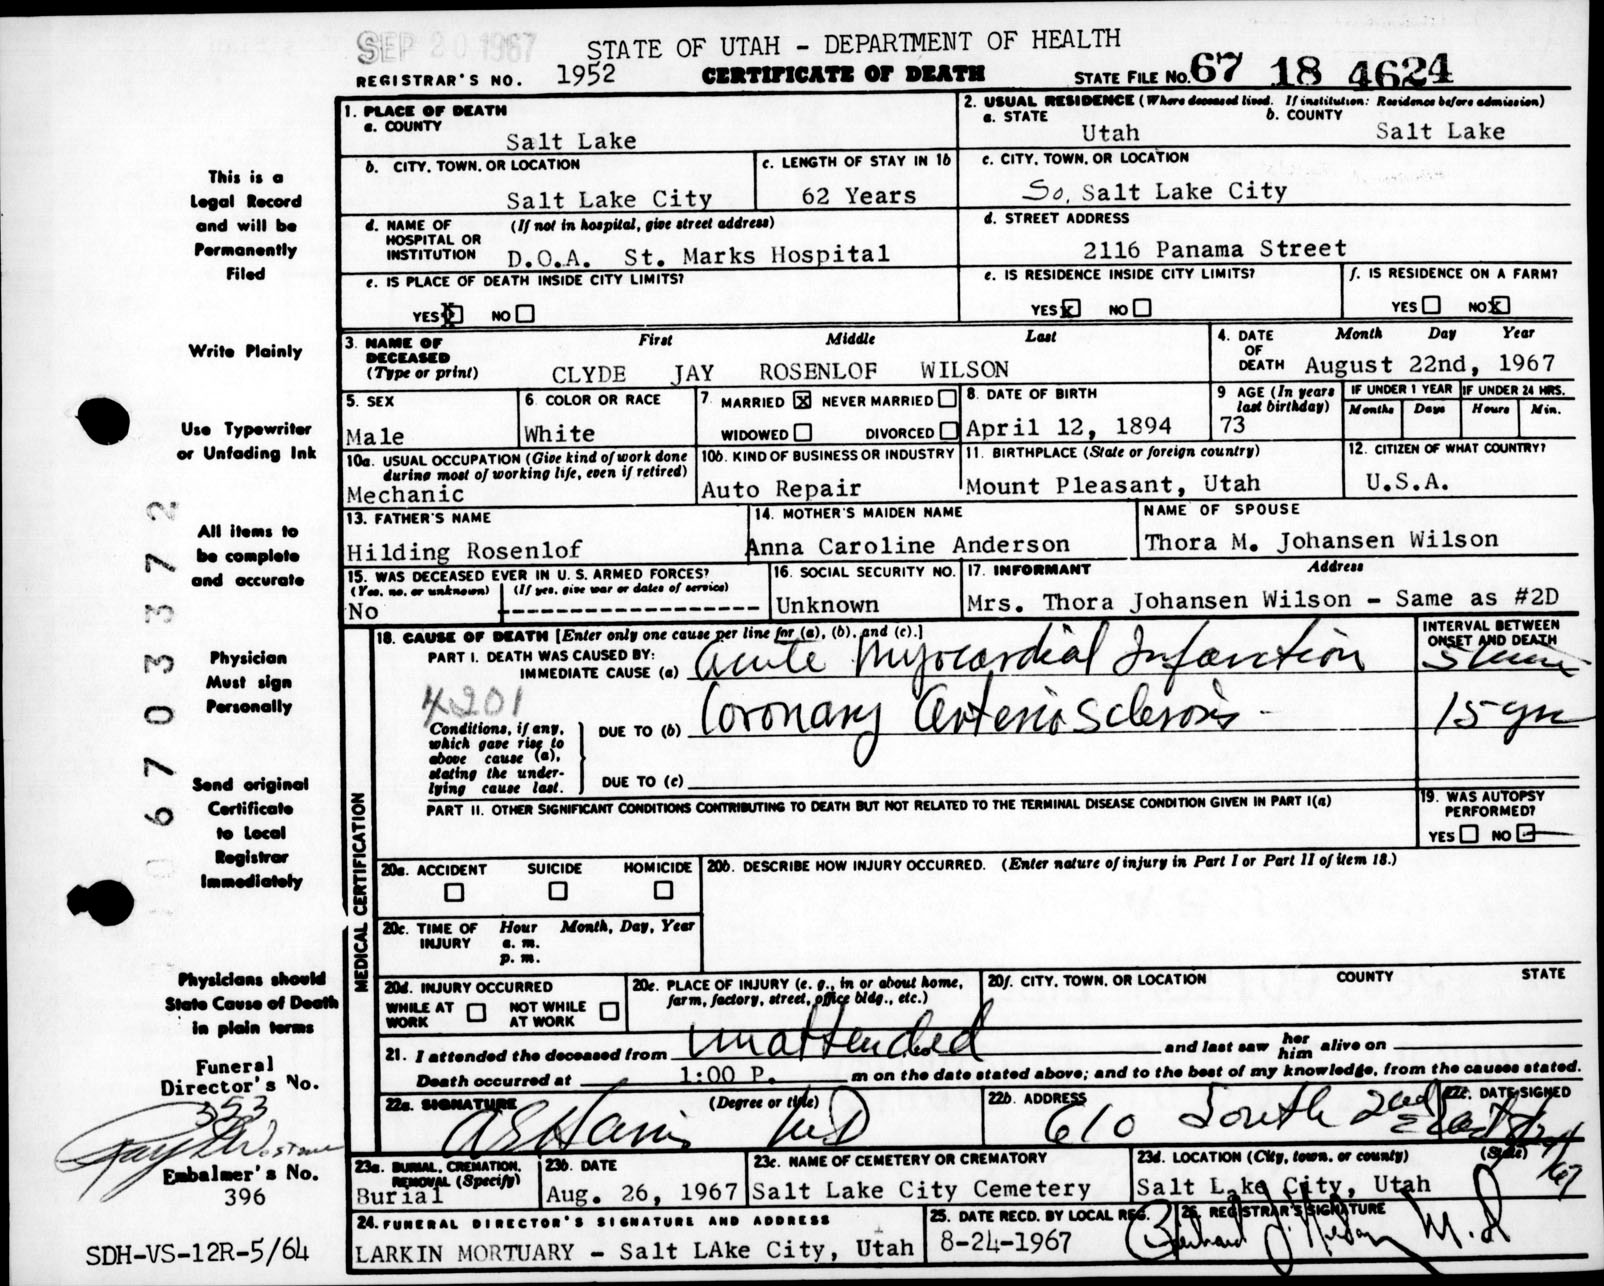 SEP 20 1967
STATE OF UTAH - DEPARTMENT OF HEALTH
REGISTRAR'S NO. 1952 CERTIFICATE OF DEATH STATE FILE NO. 67 18 4624
1. PLACE OF DEATH
a. COUNTY
Salt Lake
2. USUAL RESIDENCE (Where deceased lived. If institution: Residence before admission)
a. STATE b. COUNTY
Utah Salt Lake
b. CITY, TOWN, OR LOCATION
Salt Lake City
c. LENGTH OF STAY IN 1b
62 Years
c. CITY, TOWN, OR LOCATION
So. Salt Lake City
d. NAME OF HOSPITAL OR INSTITUTION (If not in hospital, give street address)
D.O.A. St. Marks Hospital
d. STREET ADDRESS
2116 Panama Street
e. IS PLACE OF DEATH INSIDE CITY LIMITS?
YES X NO
e. IS RESIDENCE INSIDE CITY LIMITS?
YES X NO
f. IS RESIDENCE ON A FARM?
YES NO X
3. NAME OF DECEASED (Type or print) First Middle Last
CLYDE JAY ROSENLOF WILSON
4. DATE OF DEATH Month Day Year
August 22nd, 1967
5. SEX
Male
6. COLOR OR RACE
White
7. MARRIED X NEVER MARRIED
WIDOWED DIVORCED
8. DATE OF BIRTH
April 12, 1894
9 AGE (In years last birthday)
73
IF UNDER 1 YEAR IF UNDER 24 HRS.
Months Days Hours Min.
10a. USUAL OCCUPATION (Give kind of work done during most of working life, even if retired)
Mechanic
10b. KIND OF BUSINESS OR INDUSTRY
Auto Repair
11. BIRTHPLACE (State or foreign country)
Mount Pleasant, Utah
12. CITIZEN OF WHAT COUNTRY?
U.S.A.
13. FATHER'S NAME
Hilding Rosenlof
14. MOTHER'S MAIDEN NAME
Anna Caroline Anderson
NAME OF SPOUSE
Thora M. Johansen Wilson
15. WAS DECEASED EVER IN U.S. ARMED FORCES?
(Yes, no, or unknown) (If yes, give war or dates of service)
No --------------------
16. SOCIAL SECURITY NO.
Unknown
17. INFORMANT Address
Mrs. Thora Johansen Wilson - Same as #2D
MEDICAL CERTIFICATION
18. CAUSE OF DEATH [Enter only one cause per line for (a), (b), and (c).]
PART I. DEATH WAS CAUSED BY:
IMMEDIATE CAUSE (a) Acute Myocardial Infarction
INTERVAL BETWEEN ONSET AND DEATH
4201
Conditions, if any, which gave rise to above cause (a), stating the underlying cause last.
DUE TO (b) Coronary Arteriosclerosis - 15 yrs
DUE TO (c)
PART II. OTHER SIGNIFICANT CONDITIONS CONTRIBUTING TO DEATH BUT NOT RELATED TO THE TERMINAL DISEASE CONDITION GIVEN IN PART I(a)
19. WAS AUTOPSY PERFORMED?
YES NO
20a. ACCIDENT SUICIDE HOMICIDE
20b. DESCRIBE HOW INJURY OCCURRED. (Enter nature of injury in Part I or Part II of item 18.)
20c. TIME OF INJURY Hour Month, Day, Year
a. m.
p. m.
20d. INJURY OCCURRED
WHILE AT WORK NOT WHILE AT WORK
20e. PLACE OF INJURY (e. g., in or about home, farm, factory, street, office bldg., etc.)
20f. CITY, TOWN, OR LOCATION COUNTY STATE
21. I attended the deceased from unattended and last saw her him alive on
Death occurred at 1:00 P. m on the date stated above; and to the best of my knowledge, from the causes stated.
22a. SIGNATURE (Degree or title)
AS Harris MD
22b. ADDRESS
610 South 2nd East
22c. DATE SIGNED
23a. BURIAL, CREMATION, REMOVAL (Specify)
Burial
23b. DATE
Aug. 26, 1967
23c. NAME OF CEMETERY OR CREMATORY
Salt Lake City Cemetery
23d. LOCATION (City, town, or county) (State)
Salt Lake City, Utah
24. FUNERAL DIRECTOR'S SIGNATURE AND ADDRESS
LARKIN MORTUARY - Salt LAke City, Utah
25. DATE RECD. BY LOCAL REG.
8-24-1967
26. REGISTRAR'S SIGNATURE
M.D
This is a
Legal Record
and will be
Permanently
Filed
Write Plainly
Use Typewriter
or Unfading Ink
All items to
be complete
and accurate
Physician
Must sign
Personally
Send original
Certificate
to Local
Registrar
Immediately
Physicians should
State Cause of Death
in plain terms
Funeral
Director's No.
353
Embalmer's No.
396
SDH-VS-12R-5/64
0 6 7 0 3 3 7 2